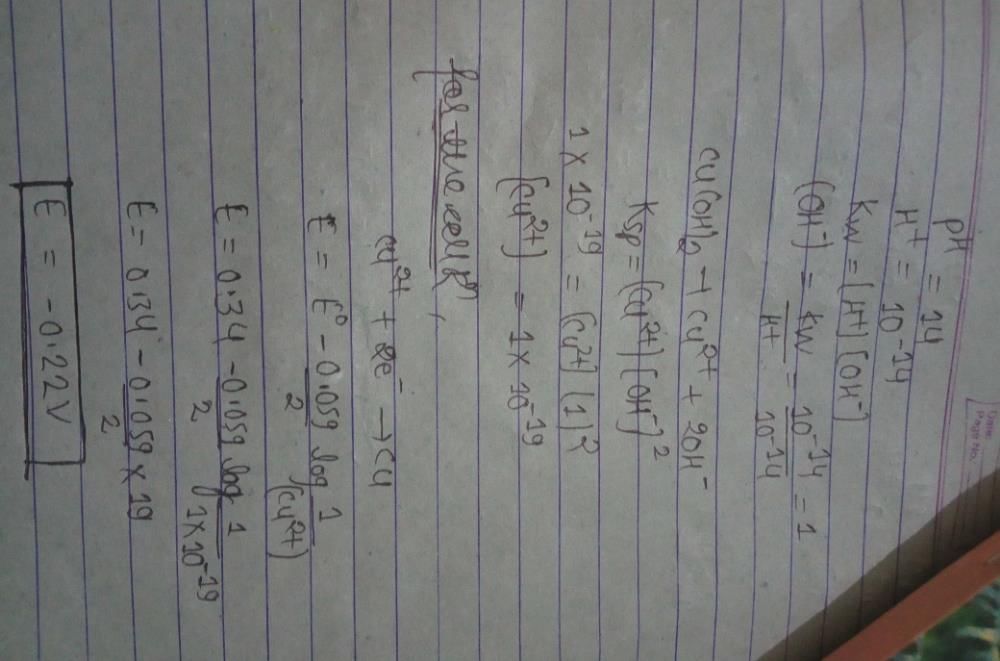 Date:
Page No.
pH = 14
H⁺ = 10⁻¹⁴
Kw = [H⁺] [OH⁻]
(OH⁻) = Kw/H⁺ = 10⁻¹⁴/10⁻¹⁴ = 1
Cu(OH)₂ → Cu²⁺ + 2OH⁻
Ksp = [Cu²⁺] [OH⁻]²
1 × 10⁻¹⁹ = [Cu²⁺] (1)²
[Cu²⁺] = 1 × 10⁻¹⁹
for the cell rxn,
Cu²⁺ + 2e⁻ → Cu
E = E⁰ - 0.059/2 log 1/(Cu²⁺)
E = 0.34 - 0.059/2 log 1/1×10⁻¹⁹
E = 0.34 - 0.059/2 × 19
E = -0.22V